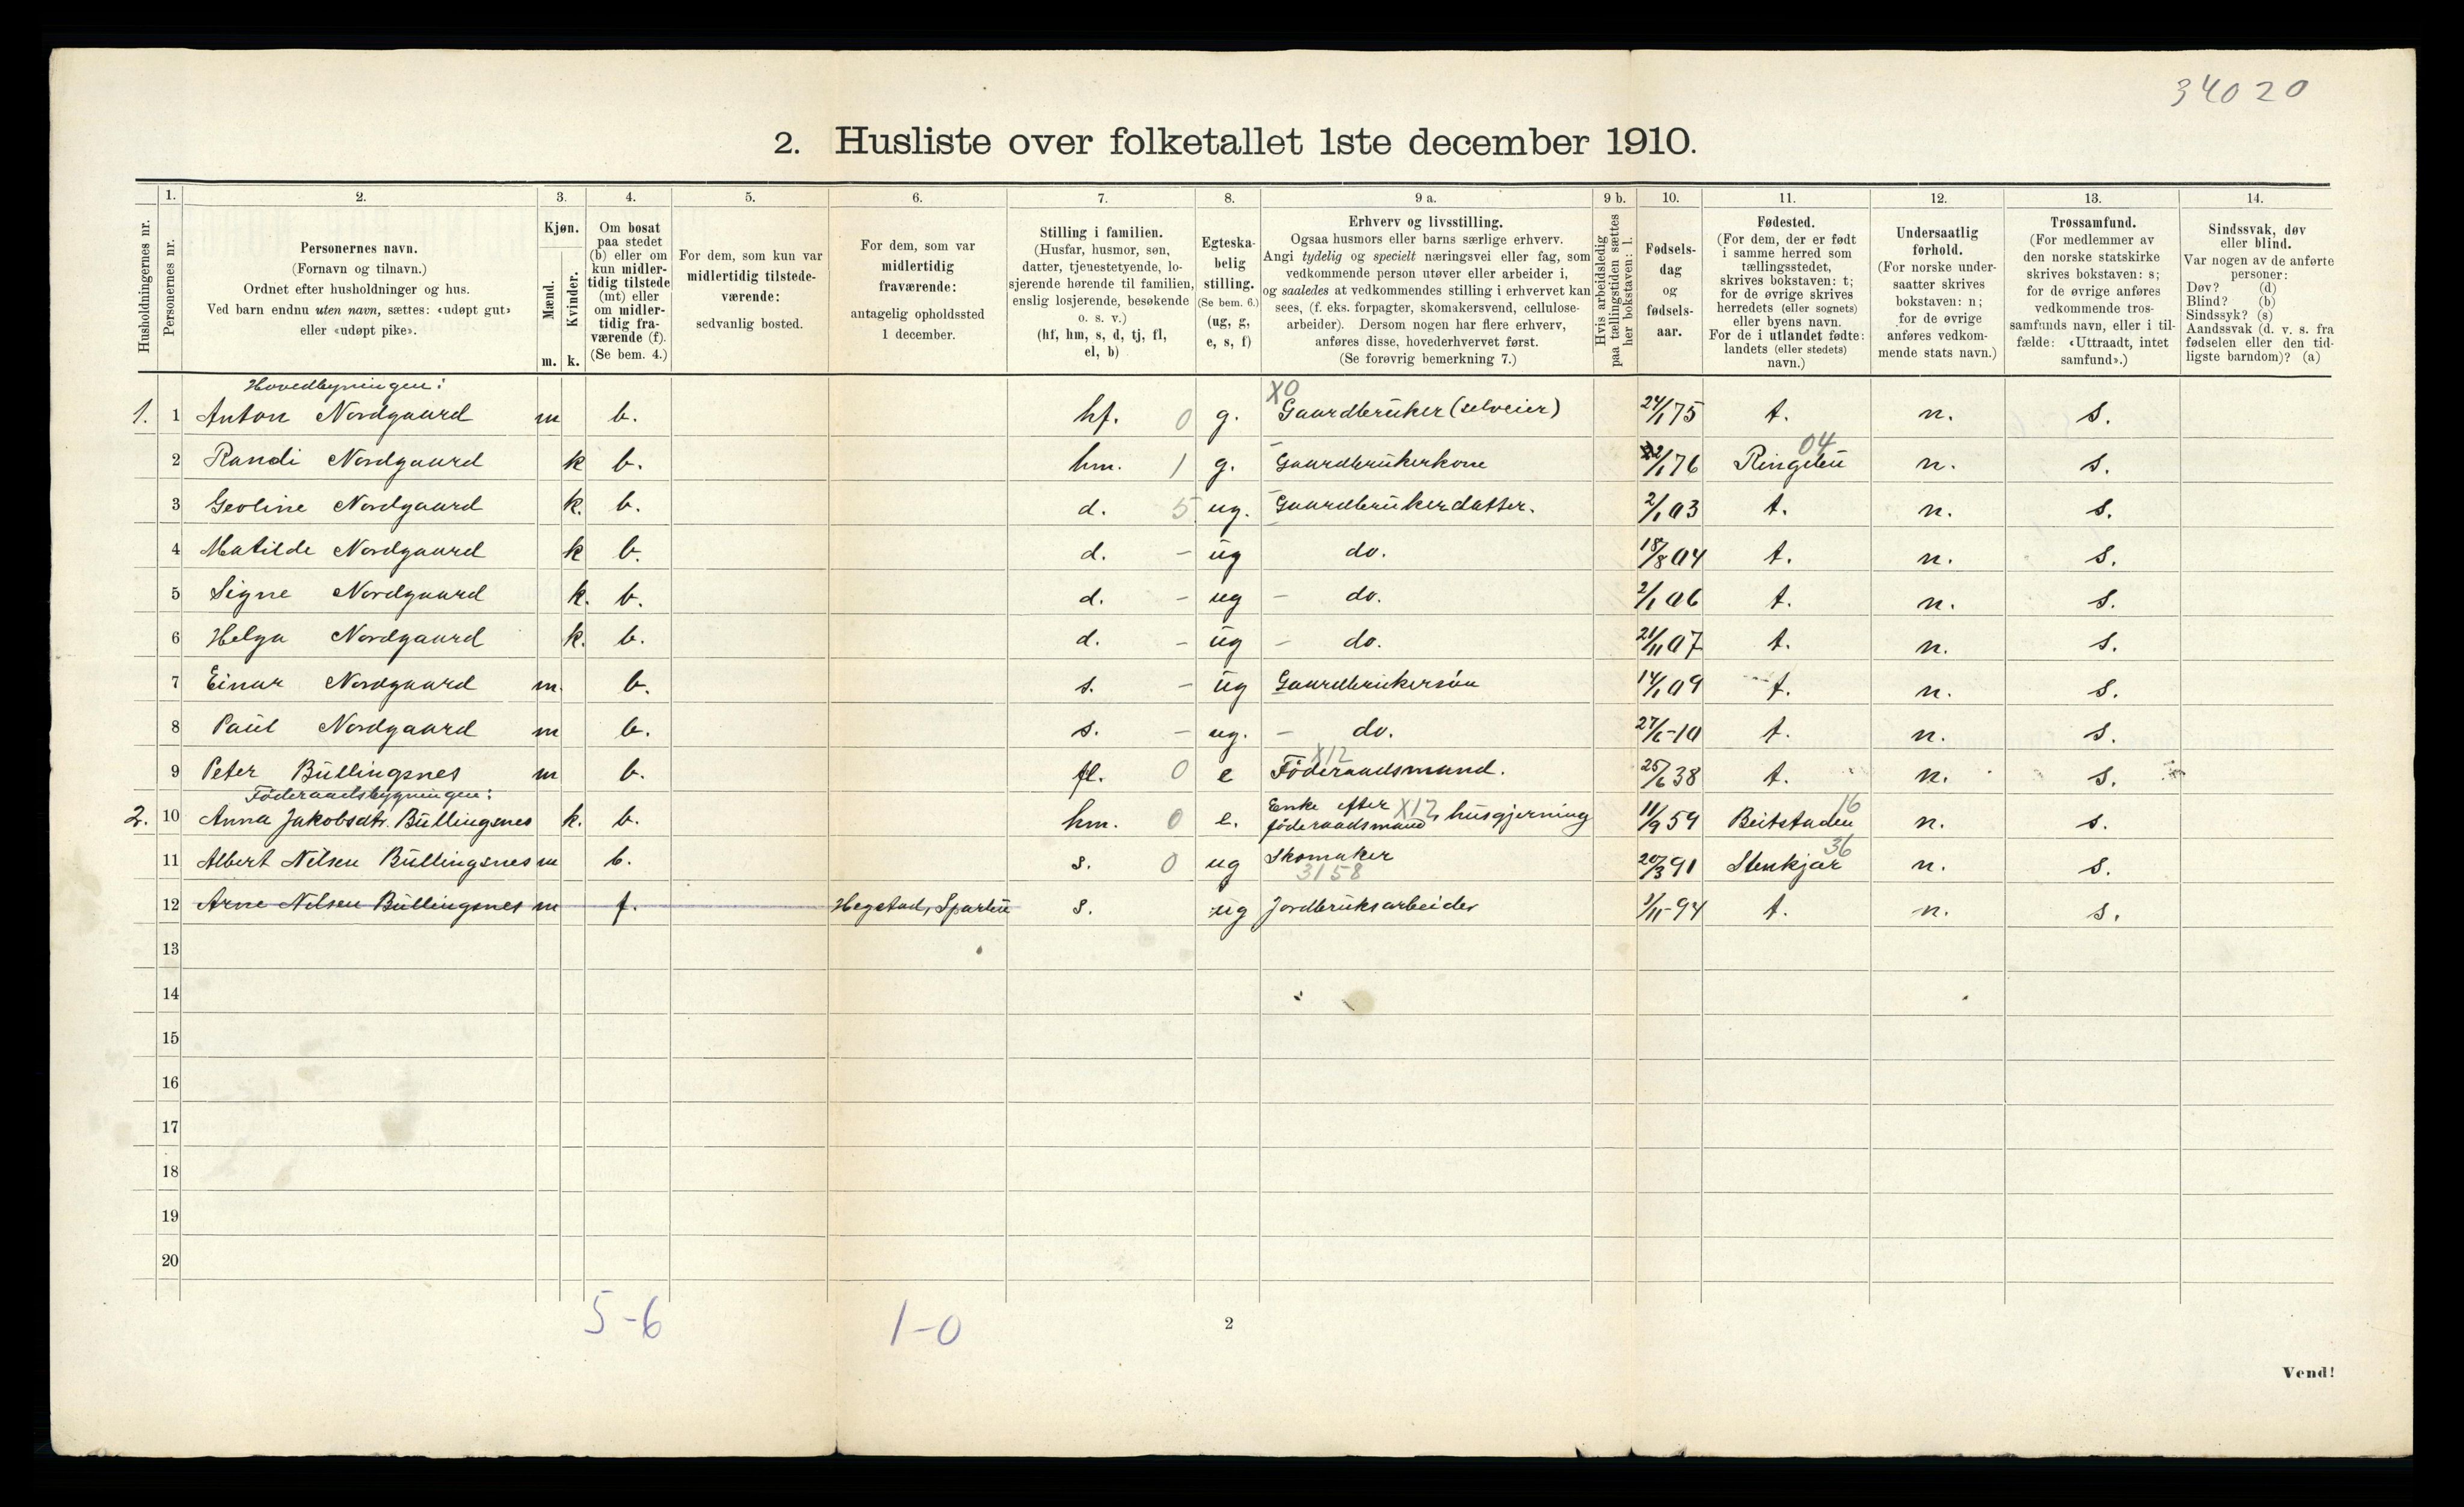 34020
2. Husliste over folketallet 1ste december 1910.
1. 2. 3. 4. 5. 6. 7. 8. 9 a. 9 b. 10. 11. 12. 13. 14.
Husholdningernes nr.
Personernes nr.
Personernes navn.
(Fornavn og tilnavn.)
Ordnet efter husholdninger og hus.
Ved barn endnu uten navn, sættes: «udøpt gut»
eller «udøpt pike».
Kjøn.
Mænd.
Kvinder.
m. k.
Om bosat
paa stedet
(b) eller om
kun midler-
tidig tilstede
(mt) eller
om midler-
tidig fra-
værende (f).
(Se bem. 4.)
For dem, som kun var
midlertidig tilstede-
værende:
sedvanlig bosted.
For dem, som var
midlertidig
fraværende:
antagelig opholdssted
1 december.
Stilling i familien.
(Husfar, husmor, søn,
datter, tjenestetyende, lo-
sjerende hørende til familien,
enslig losjerende, besøkende
o. s. v.)
(hf, hm, s, d, tj, fl,
el, b)
Egteska-
belig
stilling.
(Se bem. 6.)
(ug, g,
e, s, f)
Erhverv og livsstilling.
Ogsaa husmors eller barns særlige erhverv.
Angi tydelig og specielt næringsvei eller fag, som
vedkommende person utøver eller arbeider i,
og saaledes at vedkommendes stilling i erhvervet kan
sees, (f. eks. forpagter, skomakersvend, cellulose-
arbeider). Dersom nogen har flere erhverv,
anføres disse, hovederhvervet først.
(Se forøvrig bemerkning 7.)
Hvis arbeidsledig
paa tællingstiden sættes
her bokstaven: l.
Fødsels-
dag
og
fødsels-
aar.
Fødested.
(For dem, der er født
i samme herred som
tællingsstedet,
skrives bokstaven: t;
for de øvrige skrives
herredets (eller sognets)
eller byens navn.
For de i utlandet fødte:
landets (eller stedets)
navn.)
Undersaatlig
forhold.
(For norske under-
saatter skrives
bokstaven: n;
for de øvrige
anføres vedkom-
mende stats navn.)
Trossamfund.
(For medlemmer av
den norske statskirke
skrives bokstaven: s;
for de øvrige anføres
vedkommende tros-
samfunds navn, eller i til-
fælde: «Uttraadt, intet
samfund».)
Sindssvak, døv
eller blind.
Var nogen av de anførte
personer:
Døv? (d)
Blind? (b)
Sindssyk? (s)
Aandssvak (d. v. s. fra
fødselen eller den tid-
ligste barndom)? (a)
Hovedbyningen: X0
1. 1 Anton Nordgaard m b. hf. 0 g. Gaardbruker (selveier) 24/1 75 t. n. s.
04
2 Randi Nordgaard k b. hm. 1 g. Gaardbrukerkone 22/1 76 Ringebu n. s.
3 Geoline Nordgaard k. b. d. 5 ug. Gaardbrukerdatter. 2/1 03 t. n. s.
4 Matilde Nordgaard k b. d. - ug do. 18/8 04 t. n. s.
5 Signe Nordgaard k. b. d. - ug - do. 2/1 06 t. n. s.
6 Helga Nordgaard k. b. d. - ug - do. 21/11 07 t. n. s.
7 Einar Nordgaard m. b. s. - ug Gaardbrukersön 14/1 09 t. n. s.
8 Paul Nordgaard m b. s. - ug. - do. 27/6-10 t. n. s.
X12
9 Peter Bullingsnes m b. fl. 0 e Föderaadsmand. 25/6 38 t. n. s.
Föderaadsbygningen:
2. 10 Anna Jakobsdtr. Bullingsnes k. b. hm. 0 e. Enke efter föderaadsmand, X12 husgjerning 11/9 59 Beitstaden 16 n. s.
11 Albert Nilsen Bullingsnes m b. s. 0 ug Skomaker 3158 20/3 91 Stenkjær 36 n. s.
12 Arne Nilsen Bullingsnes m f. Hegstad, Sparbu s. ug Jordbruksarbeider 3/11-94 t. n. s.
13
14
15
16
17
18
19
20
5-6 1-0
2
Vend!